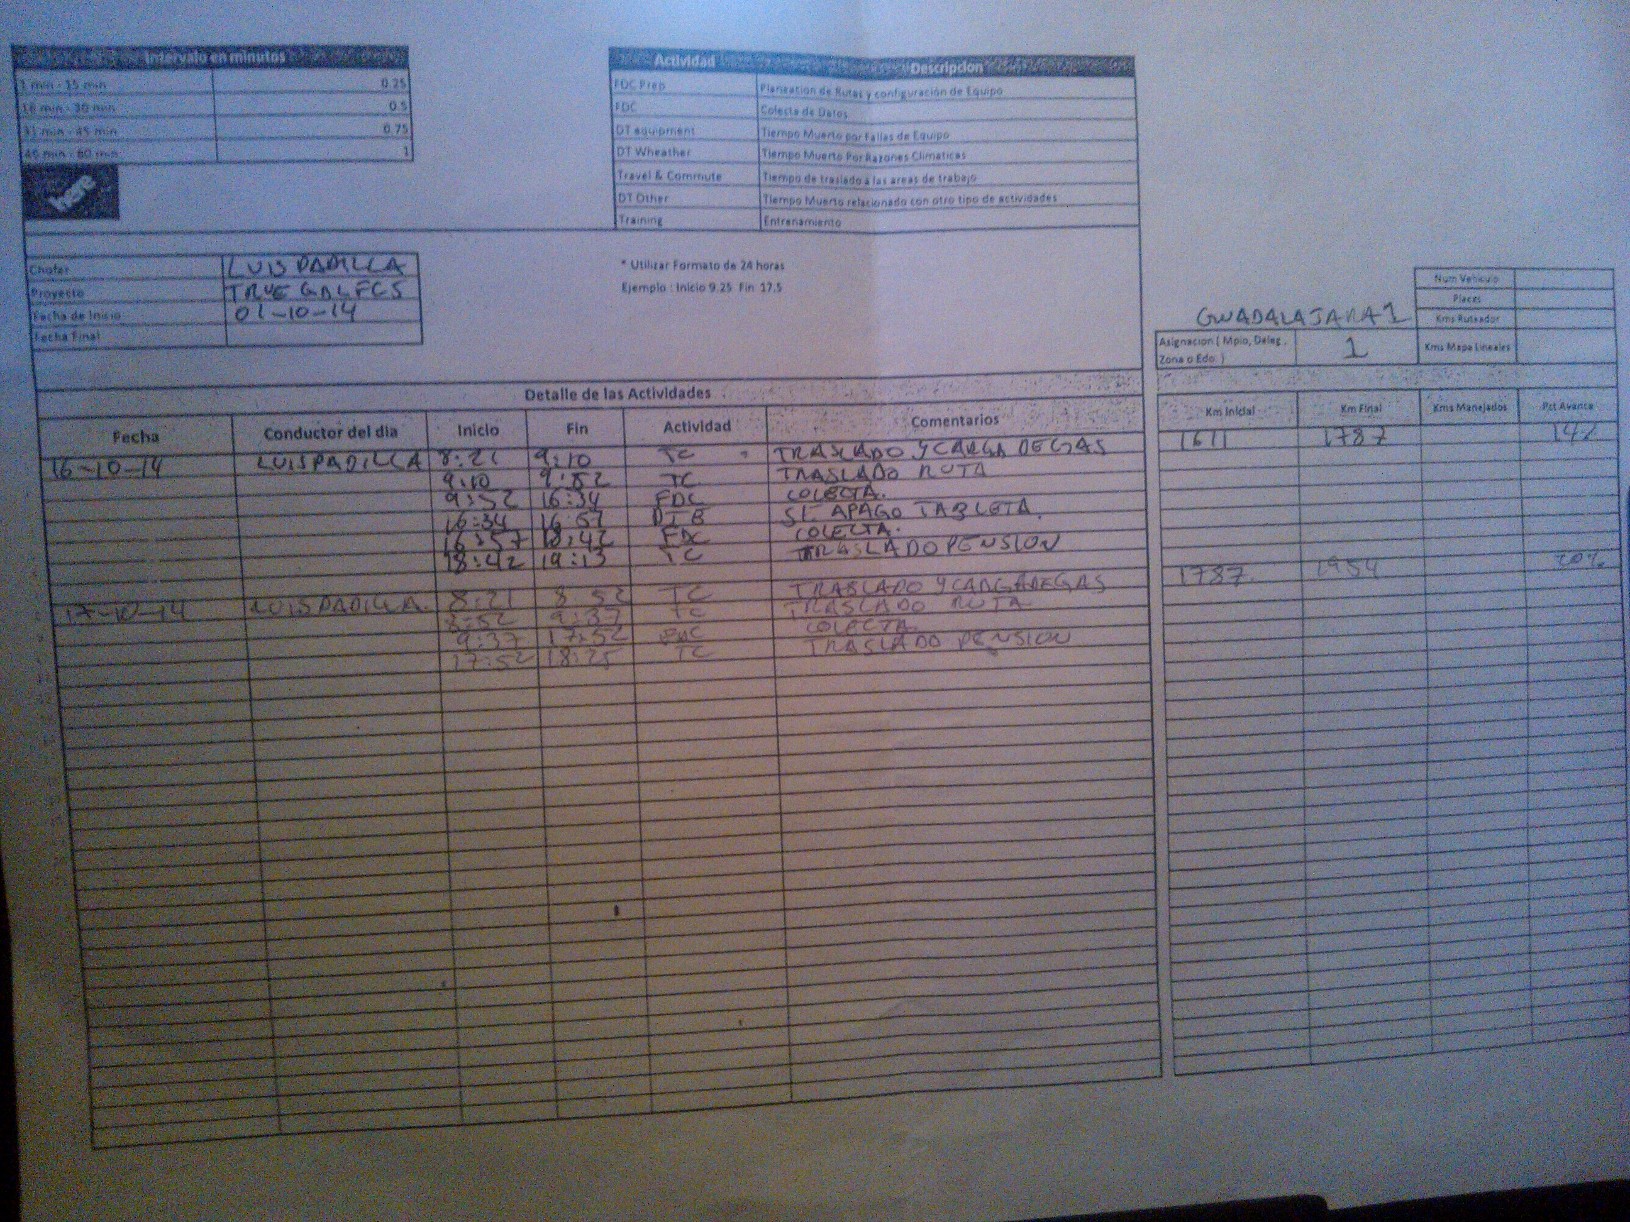 Intervalo en minutos
1 min - 15 min 0.25
16 min - 30 min 0.5
31 min - 45 min 0.75
46 min - 60 min 1
here
Actividad Descripcion
FDC Prep Planeation de Rutas y configuración de Equipo
FDC Colecta de Datos
DT equipment Tiempo Muerto por Fallas de Equipo
DT Wheather Tiempo Muerto Por Razones Climaticas
Travel & Commute Tiempo de traslado a las areas de trabajo
DT Other Tiempo Muerto relacionado con otro tipo de actividades
Training Entrenamiento
Chofer LUIS PADILLA
Proyecto TRUE GDL FCS
Fecha de Inicio 01-10-14
Fecha Final
* Utilizar Formato de 24 horas
Ejemplo : Inicio 9.25 Fin 17.5
GUADALAJARA 1
Asignacion ( Mpio, Deleg , Zona o Edo. ) 1
Num Vehiculo
Placas
Kms Ruteador
Kms Mapa Lineales
Detalle de las Actividades
Fecha Conductor del dia Inicio Fin Actividad Comentarios Km Inicial Km Final Kms Manejados Pct Avance
16-10-14 LUIS PADILLA 8:21 9:10 TC TRASLADO Y CARGA DE GAS 1611 1787
9:10 9:52 TC TRASLADO RUTA
9:52 16:34 FDC COLECTA.
16:34 16 57 SE APAGO TABLETA.
16:57 18:42 FDC COLECTA.
18:42 19:13 TC TRASLADO PENSION
17-10-14 LUIS PADILLA. 8:21 8 52 TC TRASLADO Y CARGA DE GAS 1787. 1954 20%
8:52 9:37 TC TRASLADO RUTA
9:37 17:52 FDC COLECTA.
17:52 18:25 TC TRASLADO PENSION